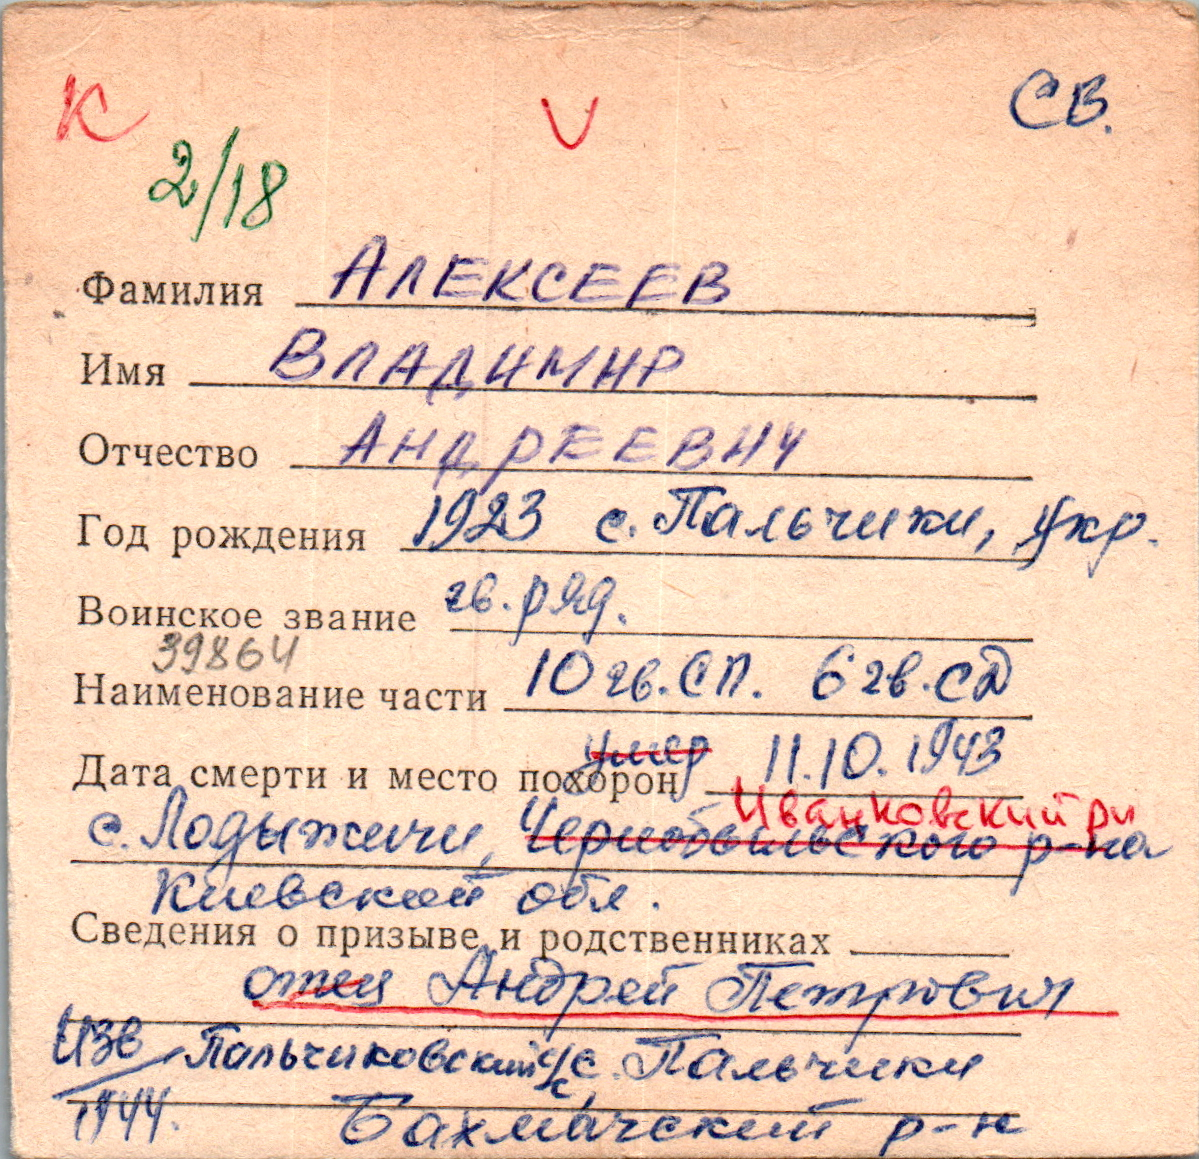 К V СВ.
2/18
Фамилия АЛЕКСЕЕВ
Имя ВЛАДИМИР
Отчество АНДРЕЕВИЧ
Год рождения 1923 с. Пальчики, Укр.
Воинское звание гв. ряд.
39864
Наименование части 10 гв. СП. 6 гв. СД
умер
Дата смерти и место похорон 11.10.1943
Иванковский рн
с. Лодыжичи, Чернобыльского р-на
Киевской обл.
Сведения о призыве и родственниках
отец Андрей Петрович
Изв Пальчиковский с/с, с. Пальчики
1944. Бахмачский р-н